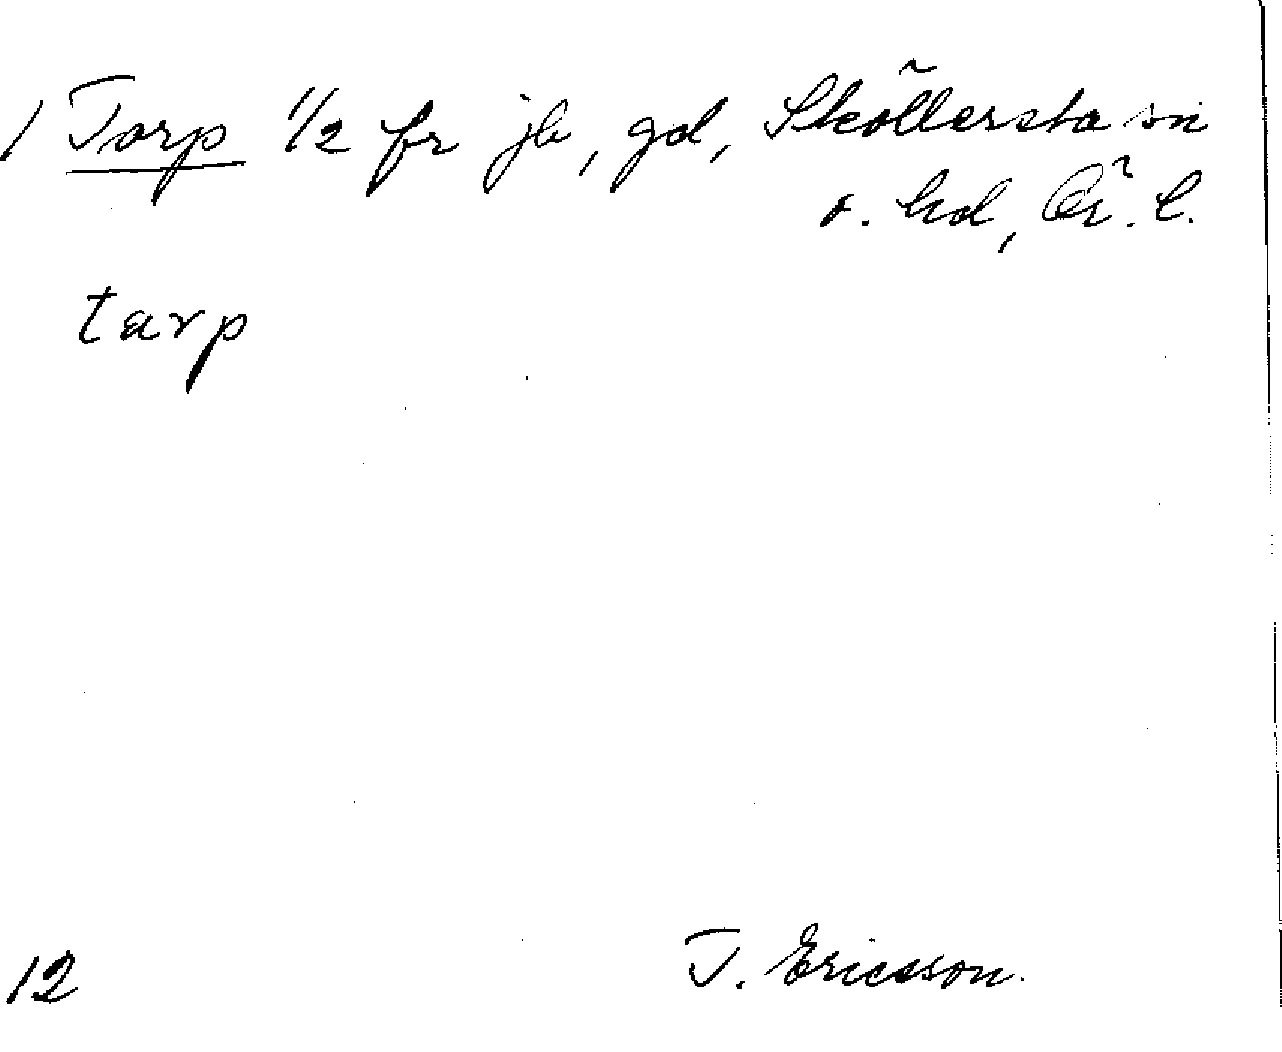 1 Torp 1/2 fr jb, gd, Sköllersta sn
o. hd, Ör. l.
tarp
12
T. Ericsson.